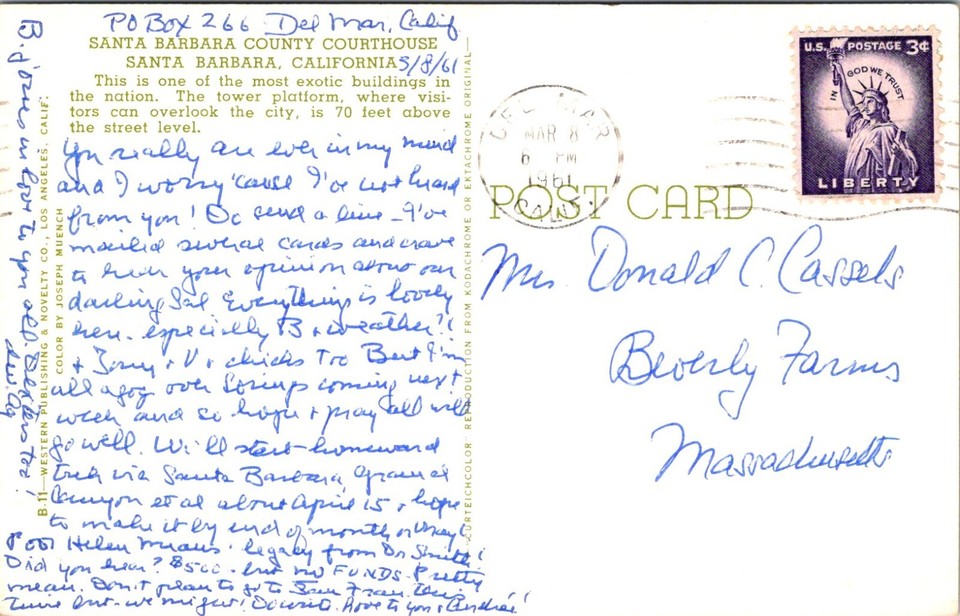 PO Box 266 Del Mar, Calif.
SANTA BARBARA COUNTY COURTHOUSE
SANTA BARBARA, CALIFORNIA 3/8/61
This is one of the most exotic buildings in
the nation. The tower platform, where visi-
tors can overlook the city, is 70 feet above
the street level.
You really are ever in my mind
and I worry 'cause I've not heard
from you! Do send a line - I've
mailed several cards and crave
to hear your opinion about our
darling Everything is lovely
here, especially B + weather!!
+ + V + chicks too But I'm
all agog over coming next
week and so hope + pray all will
go well. We'll start homeward
trek via Santa Barbara, Grand
Canyon et al about April 15 + hope
to make it by end of month or May!
Poor Helen legacy from Dr Smith!
Did you hear? $500 - but no FUNDS. Pretty
mean. Don't plan to go to San Fran. this
time but we might! Do write. Love to you +
B. joins in love to you all. too!
B-11—WESTERN PUBLISHING & NOVELTY CO., LOS ANGELES, CALIF.
COLOR BY JOSEPH MUENCH
CURTEICHCOLOR REPRODUCTION FROM KODACHROME OR EKTACHROME ORIGINAL
DEL MAR
MAR 8
6 PM
1961
CALIF.
U.S. POSTAGE 3¢
IN GOD WE TRUST
LIBERTY
POST CARD
Mrs. Donald C. Cassels
Beverly Farms
Massachusetts